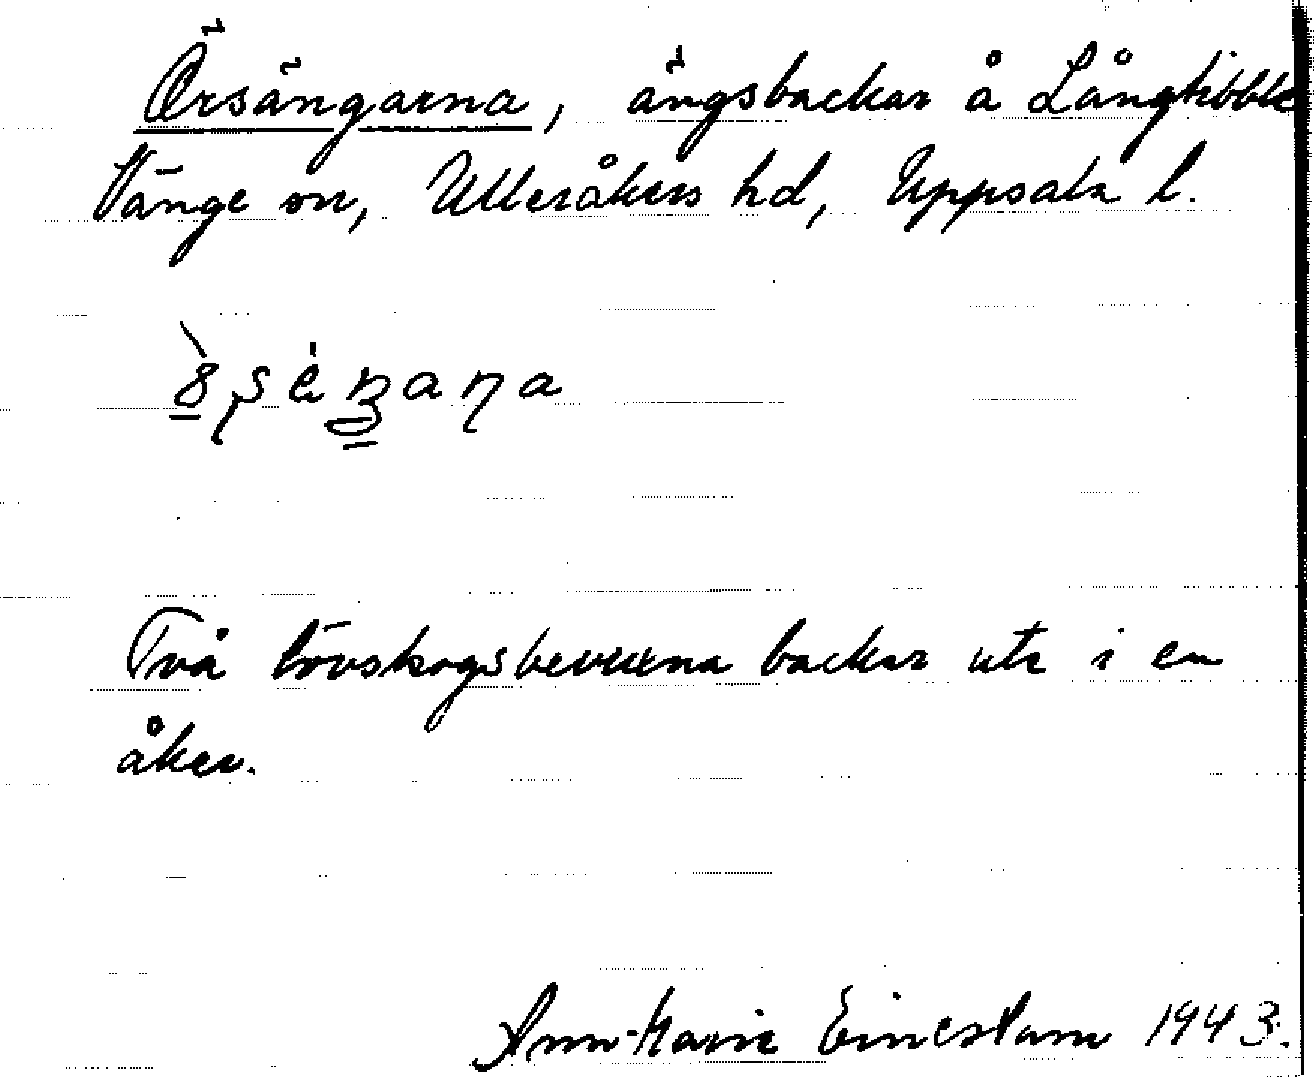 Örsängarna, ängsbackar å Långtibble
Vänge sn, Ulleråkers hd, Uppsala l.
Två lövskogsbevuxna backar ute i en
åker.
Ann-Marie 1943.